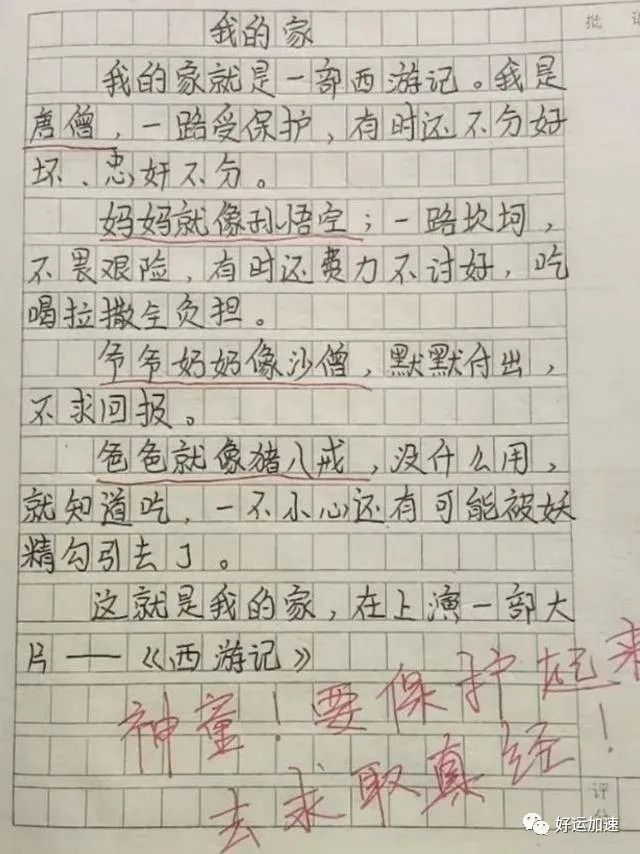 批
我的家
我的家就是一部西游记。我是
唐僧，一路受保护，有时还不分好
坏、忠奸不分。
妈妈就像孙悟空；一路坎坷，
不畏艰险，有时还费力不讨好，吃
喝拉撒全负担。
爷爷奶奶像沙僧，默默付出，
不求回报。
爸爸就像猪八戒，没什么用，
就知道吃，一不小心还有可能被妖
精勾引去了。
这就是我的家，在上演一部大
片——《西游记》
神童！要保护起来
去求取真经！
评
好运加速